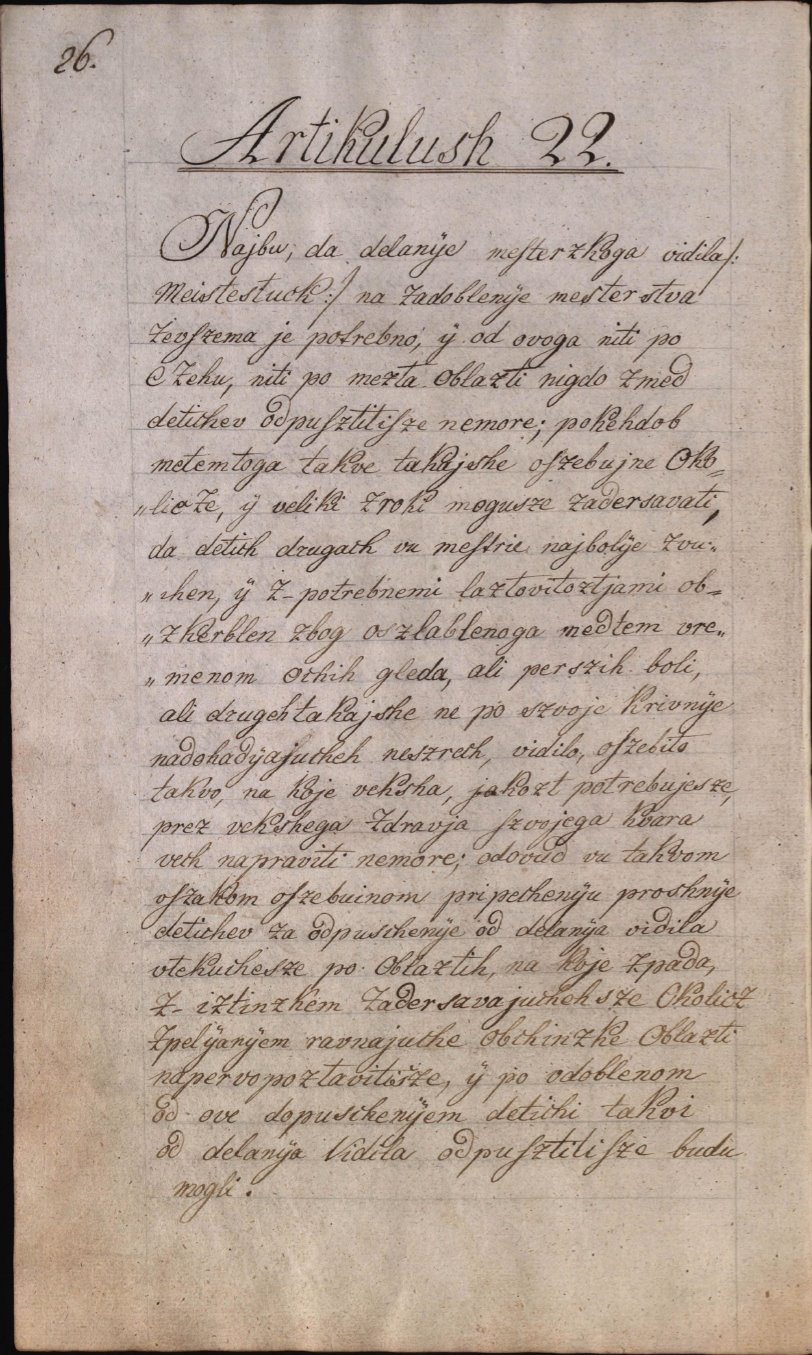 26.
Artikulush 22.
Najbu, da delanÿe mesterzkoga vidila/:
Meistestuck:/ na zadoblenÿe mesterstva
zevszema je potrebno, ÿ od ovoga niti po
Czehu, niti po mezta Oblazti nigdo zmed
detichev odpusztitisze nemore; pokehdob
metemtoga takve takajshe oszebujne Oko-
„licze, ÿ veliki zroki mogusze zadersavati,
da detich drugach vu mestrie najbolÿe zvu-
„chen, ÿ z-potrebnemi laztovitoztjami ob-
„zkerblen zbog oszlablenoga medtem vre-
„menom ochih gleda, ali perszih boli,
ali drugeh takajshe ne po szvoje krivnÿe
nadohadÿajucheh neszrech, vidilo, oszebito
takvo, na koje veksha, jakozt potrebujesze,
prez vekshega zdravja szvojega kvara
vech napraviti nemore; odovud vu takvom
oszakom oszebuinom pripechenÿu proshnÿe
detichev za odpuschenÿe od delanÿa vidila
vtekuchesze po Oblaztih, na koje zpada,
z-iztinzkem zadersavajucheh sze Okolicz
zpelÿanÿem ravnajuche Obchinzke Oblazti
napervopoztavitisze, ÿ po odoblenom
od ove dopuschenÿem detichi takvi
od delanÿa Vidila odpusztitisze budu
mogli.